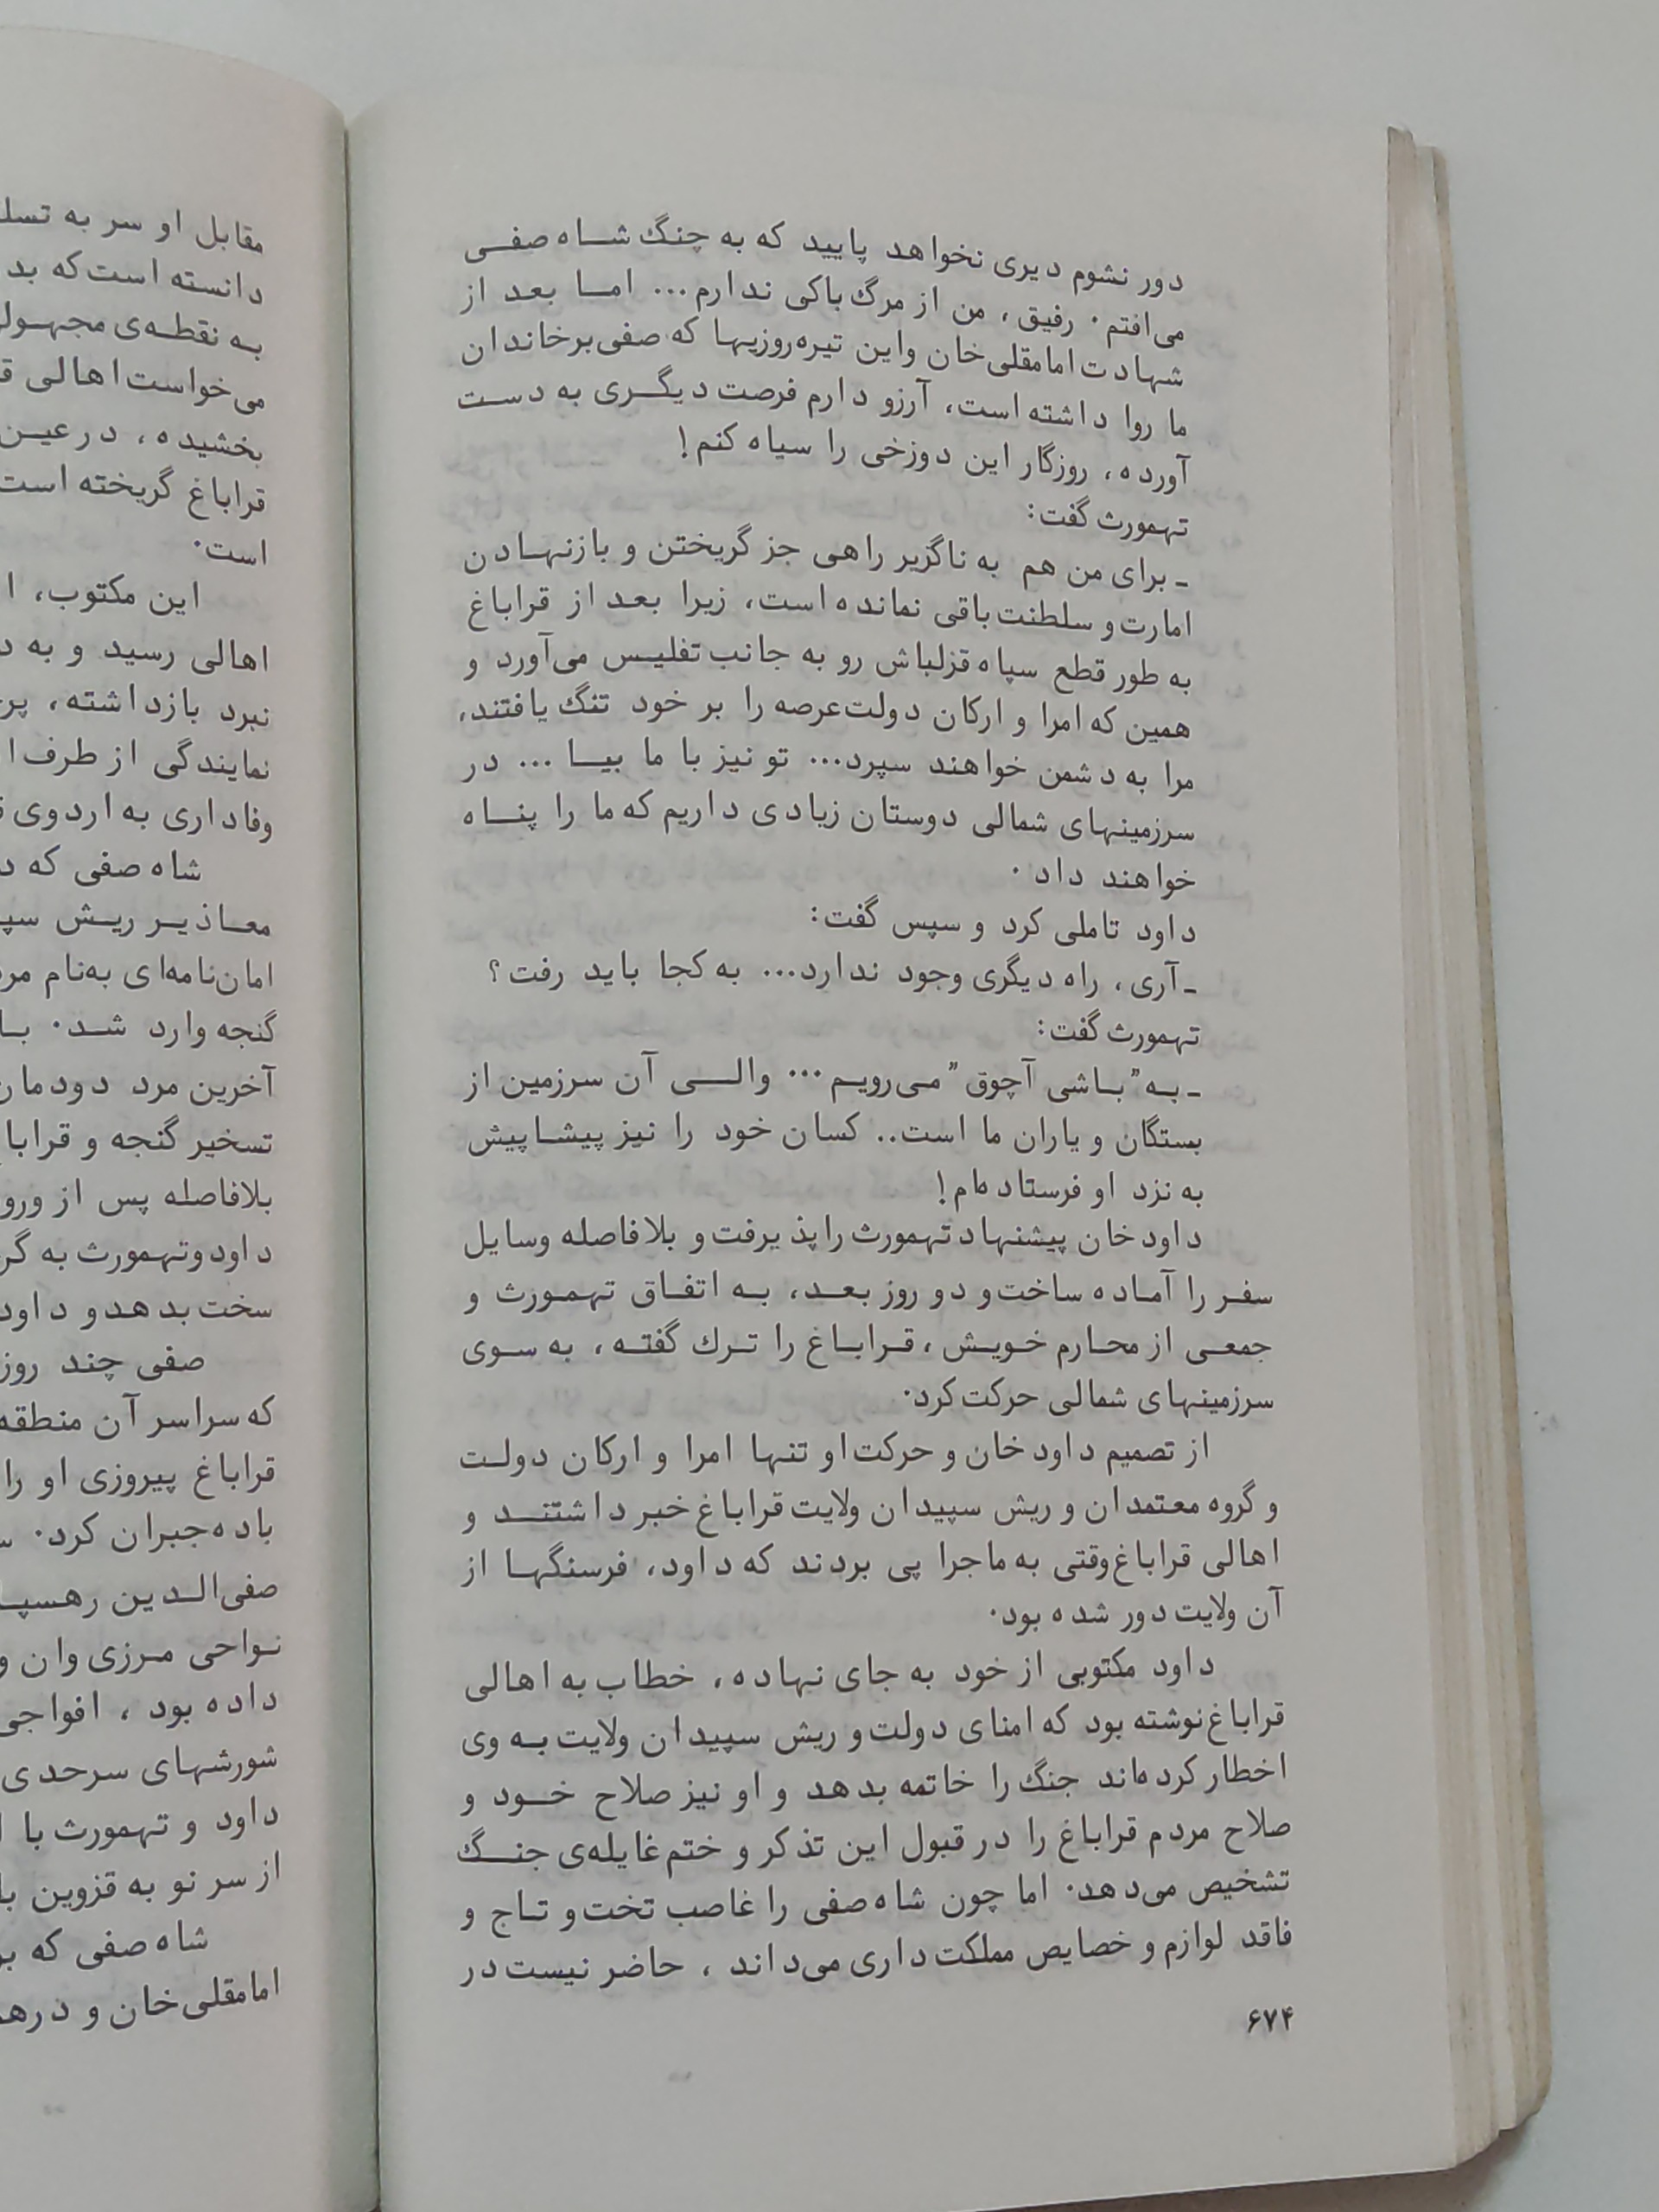 دور نشوم دیری نخواهد پایید که به چنگ شاه صفی
می‌افتم. رفیق، من از مرگ باکی ندارم... اما بعد از
شهادت امامقلی‌خان واین تیره‌روزیها که صفی برخاندان
ما روا داشته است، آرزو دارم فرصت دیگری به دست
آورده، روزگار این دوزخی را سیاه کنم!
تهمورث گفت:
ـ برای من هم به ناگزیر راهی جز گریختن و بازنهادن
امارت و سلطنت باقی نمانده است، زیرا بعد از قراباغ
به طور قطع سپاه قزلباش رو به جانب تفلیس می‌آورد و
همین که امرا و ارکان دولت عرصه را بر خود تنگ یافتند،
مرا به دشمن خواهند سپرد... تو نیز با ما بیا ... در
سرزمینهای شمالی دوستان زیادی داریم که ما را پناه
خواهند داد.
داود تاملی کرد و سپس گفت:
ـ آری، راه دیگری وجود ندارد... به کجا باید رفت؟
تهمورث گفت:
ـ به "باشی آچوق" می‌رویم... والی آن سرزمین از
بستگان و یاران ما است.. کسان خود را نیز پیشاپیش
به نزد او فرستاده‌ام!
داود خان پیشنهاد تهمورث را پذیرفت و بلافاصله وسایل
سفر را آماده ساخت و دو روز بعد، به اتفاق تهمورث و
جمعی از محارم خویش، قراباغ را ترک گفته، به سوی
سرزمینهای شمالی حرکت کرد.
از تصمیم داود خان و حرکت او تنها امرا و ارکان دولت
و گروه معتمدان و ریش سپیدان ولایت قراباغ خبر داشتند و
اهالی قراباغ وقتی به ماجرا پی بردند که داود، فرسنگها از
آن ولایت دور شده بود.
داود مکتوبی از خود به جای نهاده، خطاب به اهالی
قراباغ نوشته بود که امنای دولت و ریش سپیدان ولایت به وی
اخطار کرده‌اند جنگ را خاتمه بدهد و او نیز صلاح خود و
صلاح مردم قراباغ را در قبول این تذکر و ختم غایله‌ی جنگ
تشخیص می‌دهد. اما چون شاه صفی را غاصب تخت و تاج و
فاقد لوازم و خصایص مملکت داری می‌داند، حاضر نیست در
۶۷۴
مقابل او سر به
دانسته است که بد
به نقطه‌ی
می‌خواست اهالی
بخشیده، در عین
قراباغ گریخته است
است.
این مکتوب،
اهالی رسید و به
نبرد بازداشته،
نمایندگی از طرف
وفاداری به اردوی
شاه صفی که
معاذیر ریش
امان‌نامه‌ای به‌نام
گنجه وارد شد.
آخرین مرد دودمان
تسخیر گنجه و
بلافاصله پس از
داود وتهمورث به
سخت بدهد و داود
صفی چند روز
که سراسر آن منطقه
قراباغ پیروزی او را
باده جبران کرد.
صفی‌الدین
نواحی مرزی وان و
داده بود، افواجی
شورشهای سرحدی
داود و تهمورث با
از سر نو به قزوین
شاه صفی که
امامقلی‌خان و